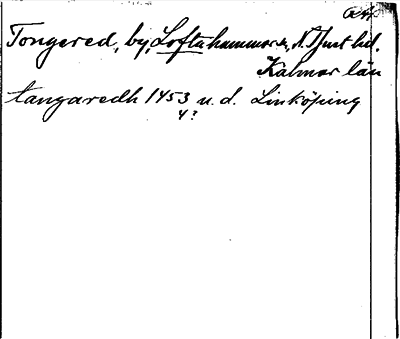 Tongered, by, Loftahammars, N. Tjust hd.
Kalmar län
tangaredh 1453 u. d. Linköping
4?